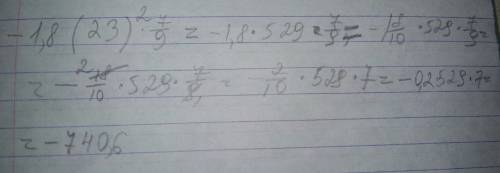 -1,8 (23)² 7/9 = -1,8 · 529 · 7/9 = -1 8/10 · 529 · 7/9 =
= - 2 18/10 · 529 · 7/9, = - 2/10 · 529 · 7 = -0,2 529 · 7 =
= -740,6